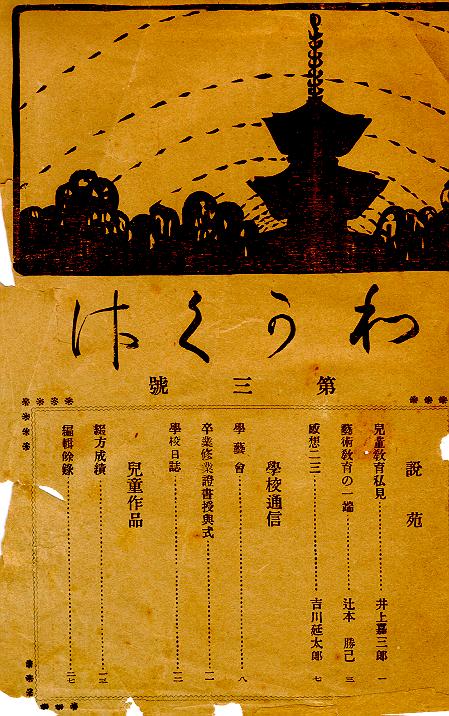 わかくさ
第三號
説苑
兒童敎育私見……井上嘉三郎 一
藝術敎育の一端……辻本勝己 三
感想二三……吉川延太郎 七
學校通信
學藝會……八
卒業修業證書授與式……一一
學校日誌……一二
兒童作品
綴方成績……一三
編輯餘錄……二七